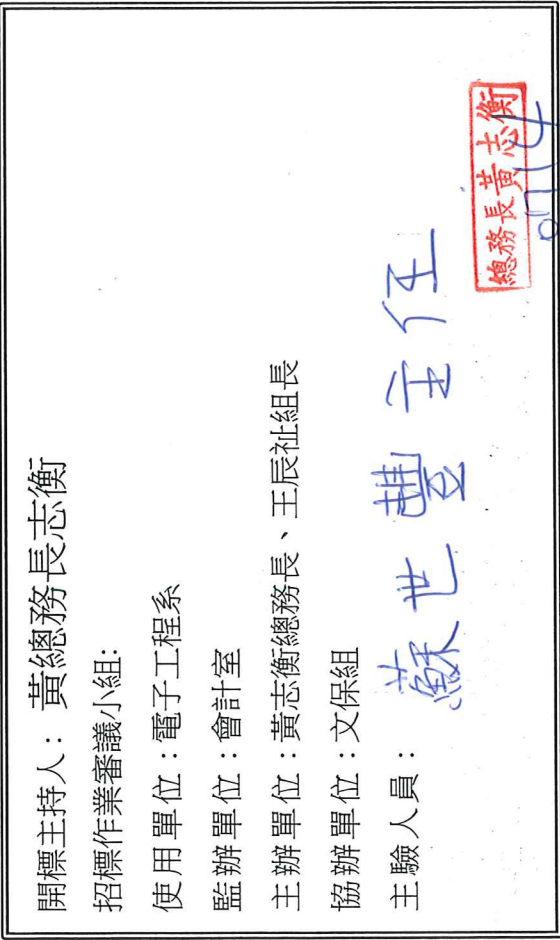 開標主持人：黃總務長志衡
招標作業審議小組:
使用單位：電子工程系
監辦單位：會計室
主辦單位：黃志衡總務長、王辰祉組長
協辦單位：文保組
主驗人員： 蘇世豐主任
總務長黃志衡
0714